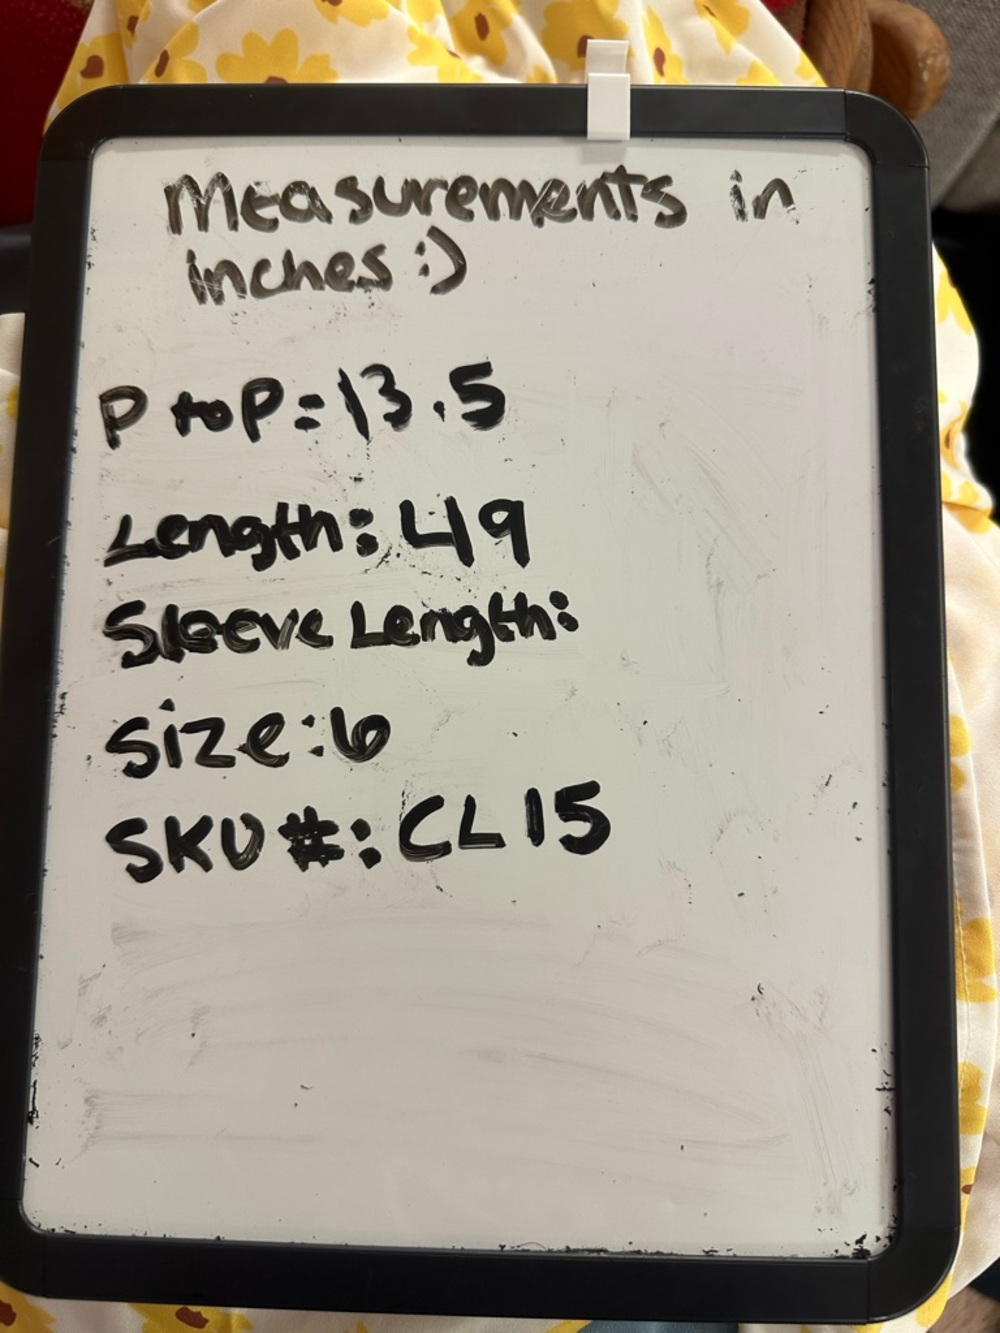 Measurements in
inches :)
P to P = 13.5
Length: 49
Sleeve Length:
Size: 6
SKU #: CL15